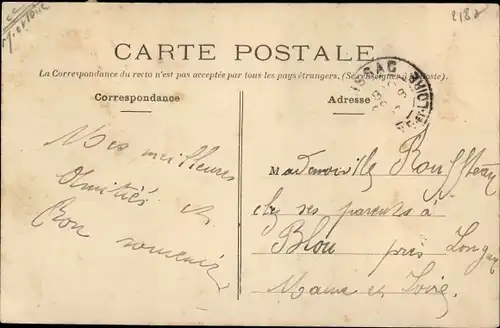 2182
CARTE POSTALE
La Correspondance du recto n'est pas acceptée par tous les pays étrangers. (Se renseigner à la Poste).
Correspondance
Adresse
Mes meilleures
Amitiés et
Bon souvenir
Mademoiselle
chez ses parents à
Blou près Longué
Maine et Loire